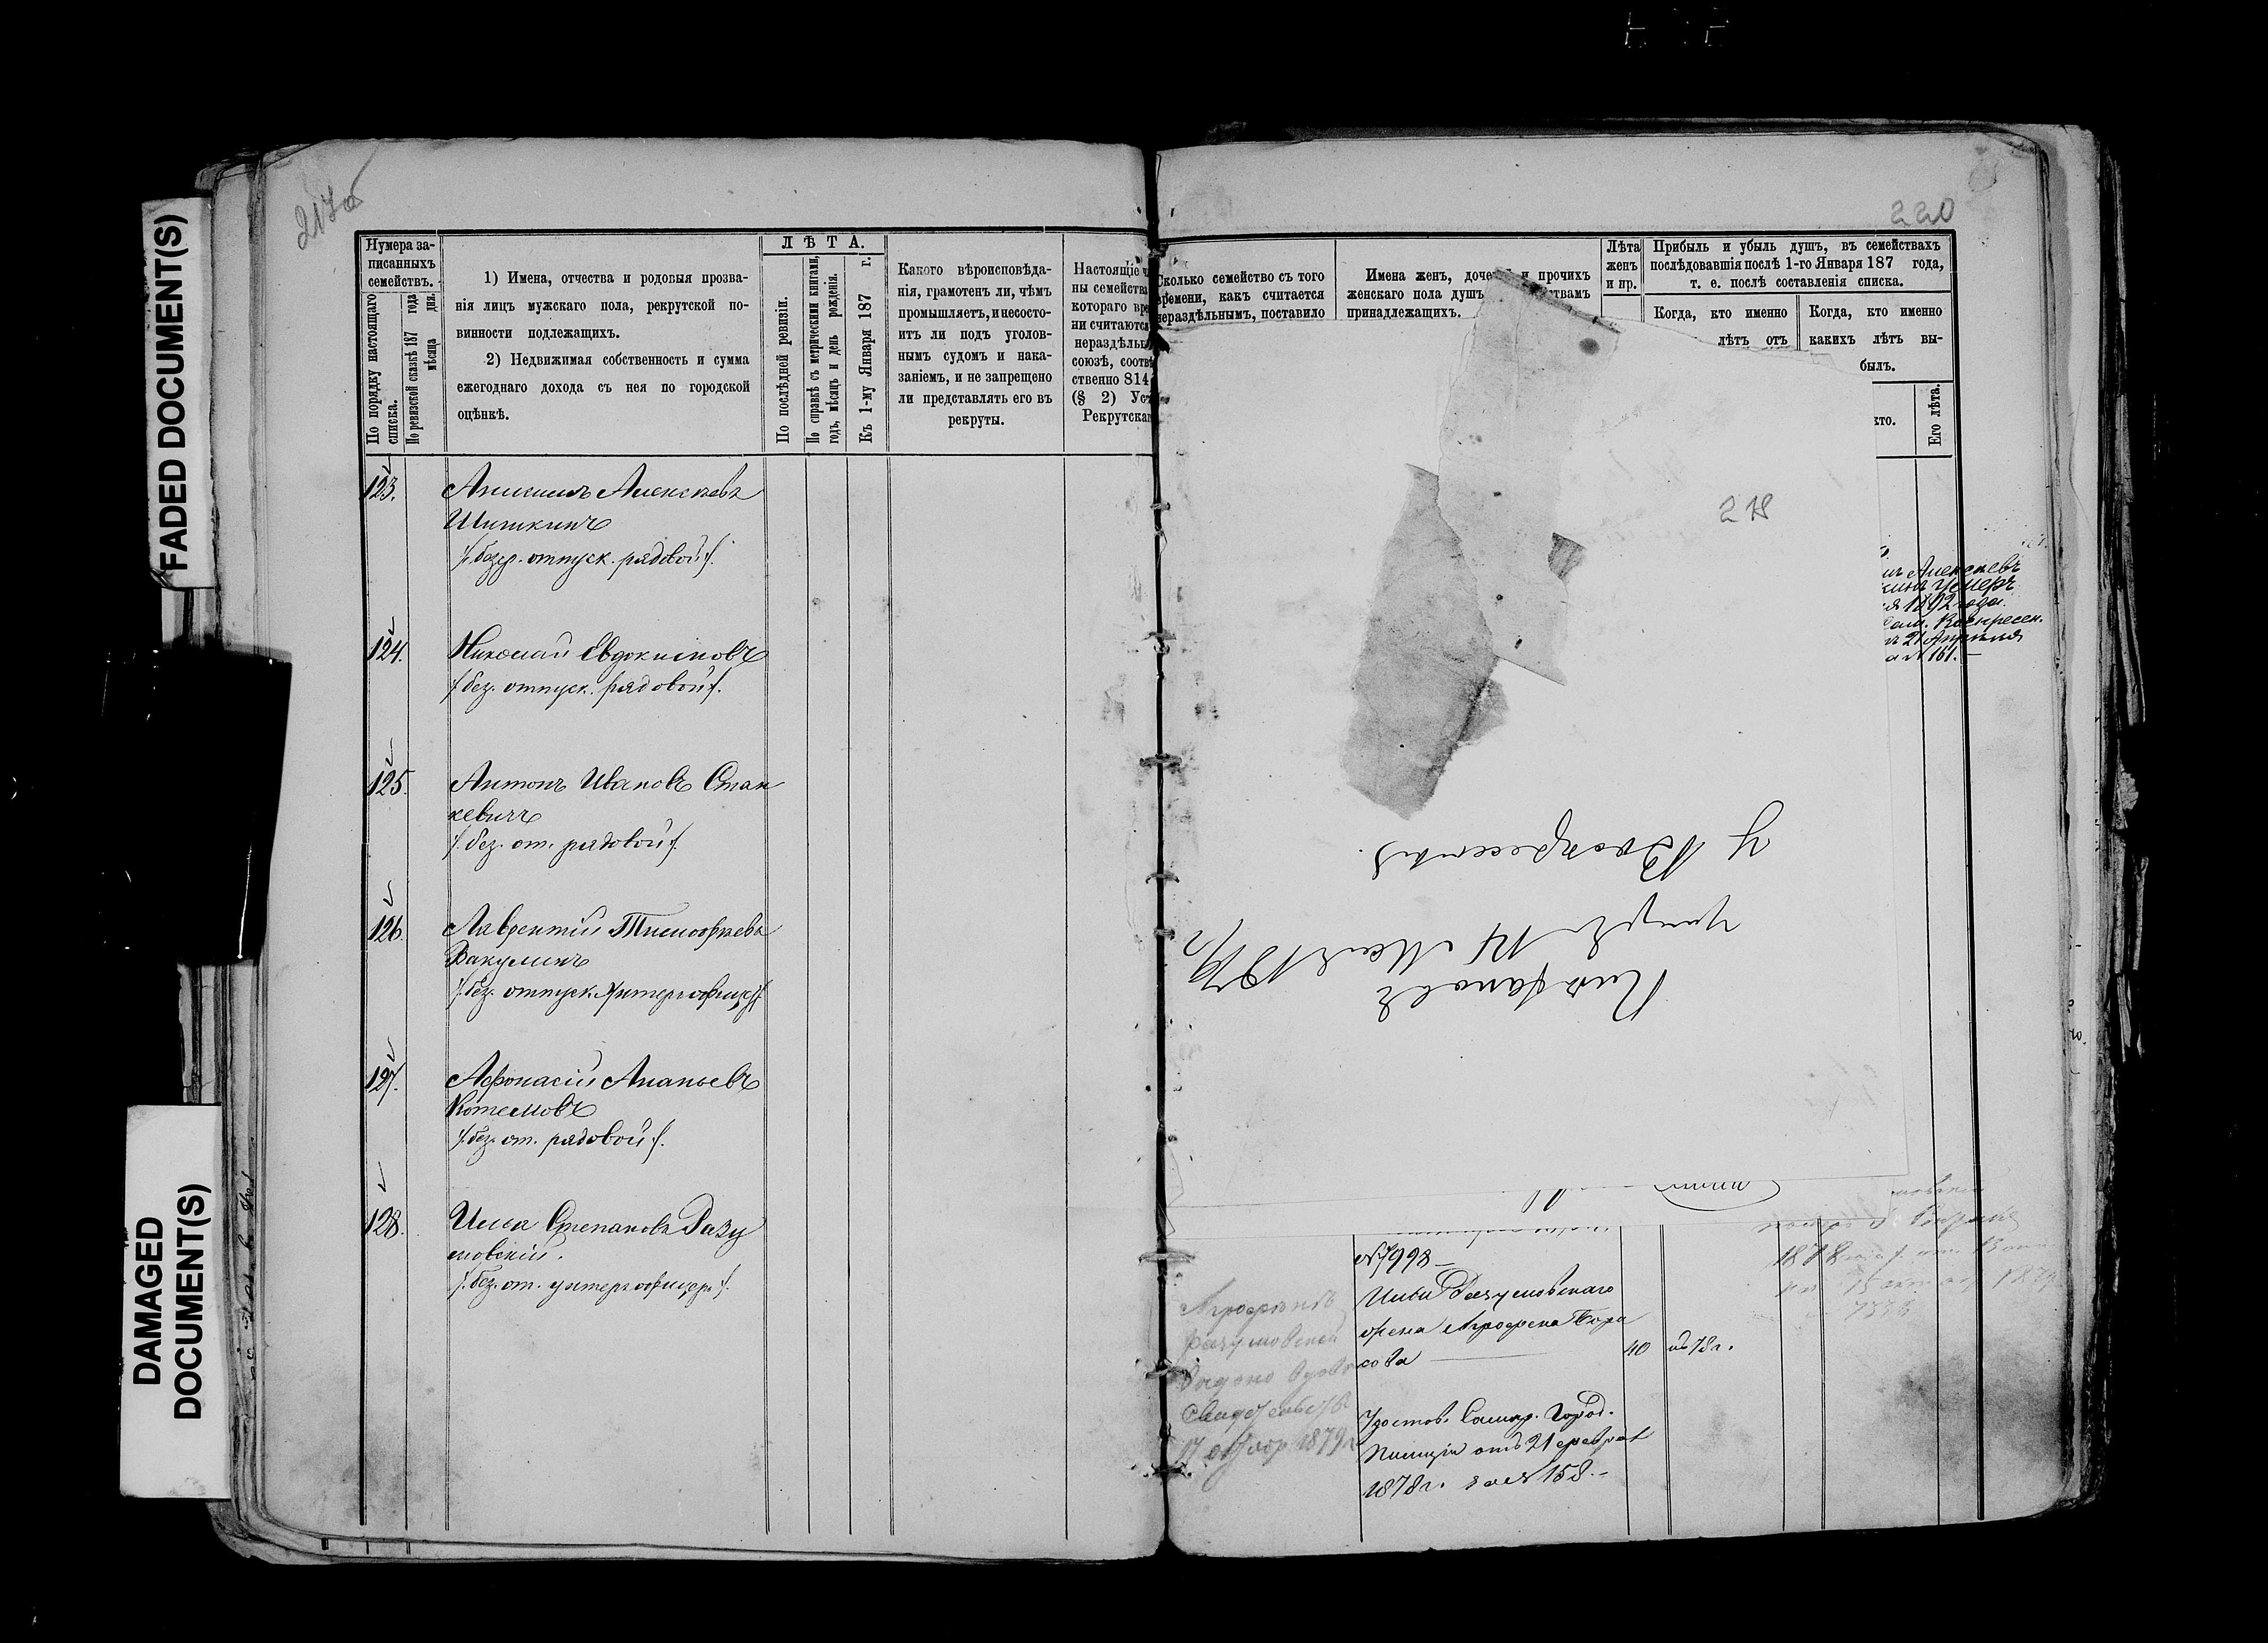 FADED DOCUMENT(S)
DAMAGED
DOCUMENT(S)
217об
Нумера за-
писанныхъ
семействъ.
По порядку настоящаго
списка.
По ревизской сказкѣ 187 года
мѣсяца дня.
1) Имена, отчества и родовыя прозва-
нія лицъ мужскаго пола, рекрутской по-
винности подлежащихъ.
2) Недвижимая собственность и сумма
ежегоднаго дохода съ нея по городской
оцѣнкѣ.
ЛѢТА.
По послѣдней ревизіи.
По справкѣ съ метрическими книгами,
годъ, мѣсяцъ и день рожденія.
Къ 1-му Января 187 г.
Какого вѣроисповѣда-
нія, грамотенъ ли, чѣмъ
промышляетъ, и несосто-
итъ ли подъ уголов-
нымъ судомъ и нака-
заніемъ, и не запрещено
ли представлять его въ
рекруты.
Настоящіе ч
ны семейства
котораго вре
ни считаются
нераздѣльн
союзѣ, соотвѣ
ственно 814
(§ 2) Уст
Рекрутскаг
123.
Алексѣевъ
Шишкинъ
/: безср. отпуск. рядовой :/.
124.
Николай Евдокимовъ
/: без. отпуск. рядовой :/.
125.
Антонъ Ивановъ Стан
кевичъ
/: без. от. рядовой :/.
126.
Лаврентій Тимофѣевъ
Вакулинъ
/: без. отпуск. унтеръ офицеръ :/
127.
Афонасій Ананьевъ
Котемовъ
/: без. от. рядовой :/.
128.
Илья Степановъ Разу
мовскій.
/: без. от. унтеръ офицеръ :/.
220
Сколько семейство съ того
времени, какъ считается
нераздѣльнымъ, поставило
Имена женъ, доче и прочихъ
женскаго пола душъ ствамъ
принадлежащихъ.
Лѣта
женъ
и пр.
Прибыль и убыль душъ, въ семействахъ
послѣдовавшія послѣ 1-го Января 187 года,
т. е. послѣ составленія списка.
Когда, кто именно
лѣтъ отъ
Когда, кто именно
какихъ лѣтъ вы-
былъ.
кто.
Его лѣта.
218
Алексѣевъ
умеръ
1892 года.
Воскресен.
21 Апрѣля
№ 161.
14 Мая
у Воскресенія.
№ 7998
Ильи Разумовскаго
жена Агрофена Бори
сова
40
въ 78 г.
Агрофенѣ
Разумовской
Выдано вдовье
свидѣтельство
17 октябр 1879 г
Удостов. Самар. Город.
Полиціи отъ 21 февраля
1878 г. за № 158.
1878
15 октяб 1879